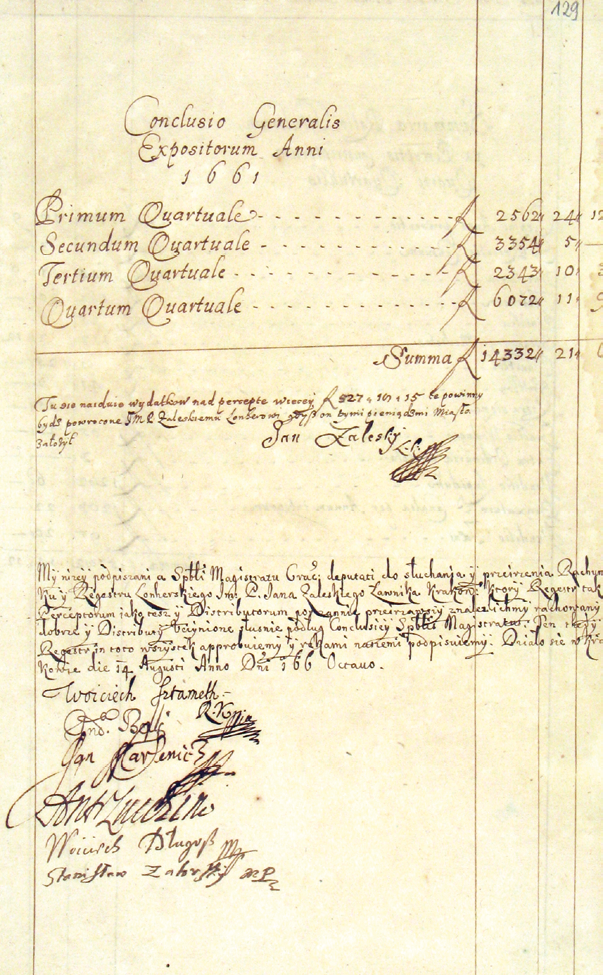 129
Conclusio Generalis
Expositorum Anni
1661
Primum Quartuale - - - - - - - - - - - - f 2562 24 12
Secundum Quartuale - - - - - - - - - - - f 3354 5 —
Tertium Quartuale - - - - - - - - - - - - f 2343 10
Quartum Quartuale - - - - - - - - - - - f 6072 11
Summa f 14332 21
Tu się naiduio wydatkow nad percepte wiecey f 527 15 te powinny
bydz powrocone Zaleskiemu Lonherowi gdyż on tymi pieniądzmi Miasta
założył
Jan Zaleski
My niżey podpisani a Magistratu deputaci do słuchania y przeirzenia Rachun
Regestru Lonherskiego P. Jana Zaleskiego Ławnika Ktory Regestr tak
Perceptorum jako tesz y Distributorum przeirzawszy znalezlichmy rachowany
dobrze y uczynione słusnie podług Magistratus. Ten tedy
Regestr in toto wszystek approbuiemy y rękami naszemi podpisuiemy. Działo się w Kra
kowie die 14 Augusti Anno Dni 166 Octavo.
Woiciech
Jan
Woiciech Długosz
Stanisław